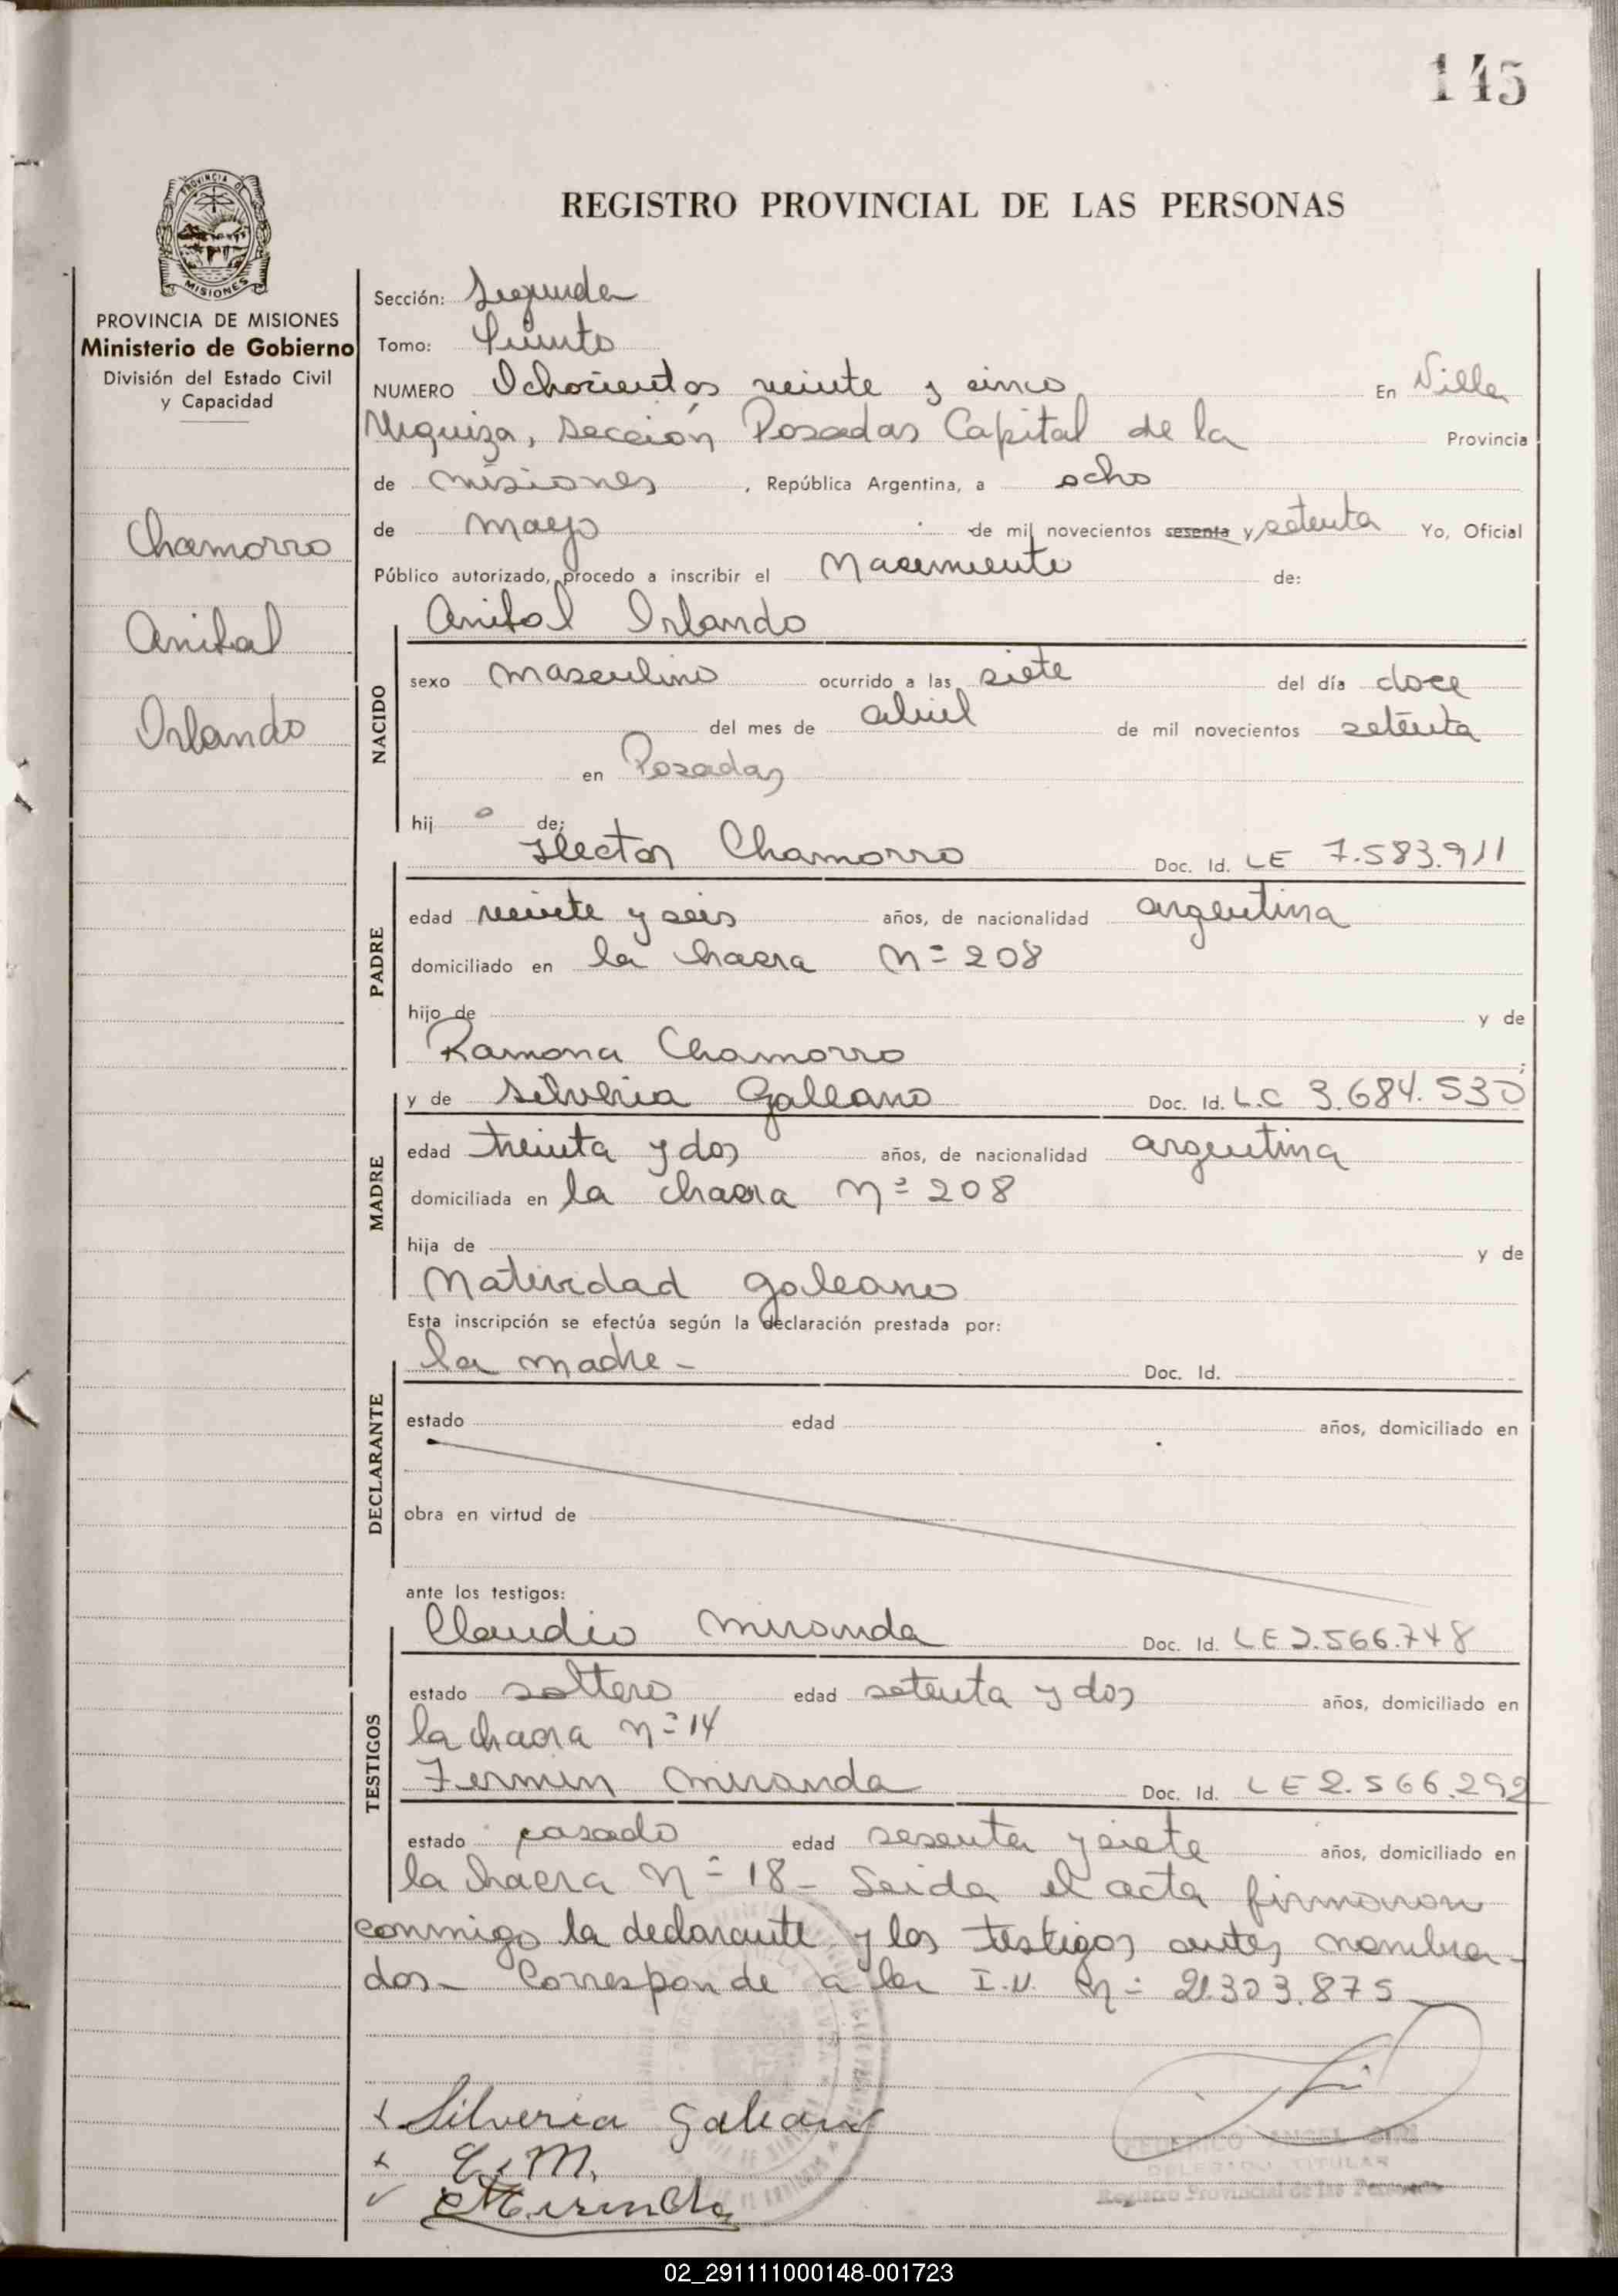 145
REGISTRO PROVINCIAL DE LAS PERSONAS
PROVINCIA DE MISIONES
MISIONES
PROVINCIA DE MISIONES
Ministerio de Gobierno
División del Estado Civil
y Capacidad
Chamorro
Anibal
Orlando
Sección: Segunda
Tomo: Quinto
NUMERO Ochocientos veinte y cinco En Villa
Urquiza, Sección Posadas Capital de la Provincia
de misiones, República Argentina, a ocho
de mayo de mil novecientos sesenta y setenta Yo, Oficial
Público autorizado, procedo a inscribir el Nacimiento de:
Anibal Orlando
NACIDO
sexo masculino ocurrido a las siete del día doce
del mes de abril de mil novecientos setenta
en Posadas
hij o de:
Hector Chamorro Doc. Id. LE 7.583.911
PADRE
edad veinte y seis años, de nacionalidad argentina
domiciliado en la chacra Nº 208
hijo de y de
Ramona Chamorro
y de Silveria Galeano Doc. Id. L.C 3.684.530
MADRE
edad treinta y dos años, de nacionalidad argentina
domiciliada en la chacra Nº 208
hija de y de
Natividad Galeano
Esta inscripción se efectúa según la declaración prestada por:
la madre - Doc. Id.
DECLARANTE
estado edad años, domiciliado en
obra en virtud de
ante los testigos:
Claudio Miranda Doc. Id. LE 2.566.748
TESTIGOS
estado soltero edad setenta y dos años, domiciliado en
la chacra Nº 14
Fermin Miranda Doc. Id. LE 2.566.292
estado casado edad sesenta y siete años, domiciliado en
la chacra Nº 18 - Leida el acta firmaron
conmigo la declarante y los testigos antes nombra-
dos - Corresponde a la I.N. Nº 21.303.875
Silveria Galeano
C. M.
FEDERICO ANGEL
DELEGADO TITULAR
Registro Provincial de las Personas
02_291111000148-001723